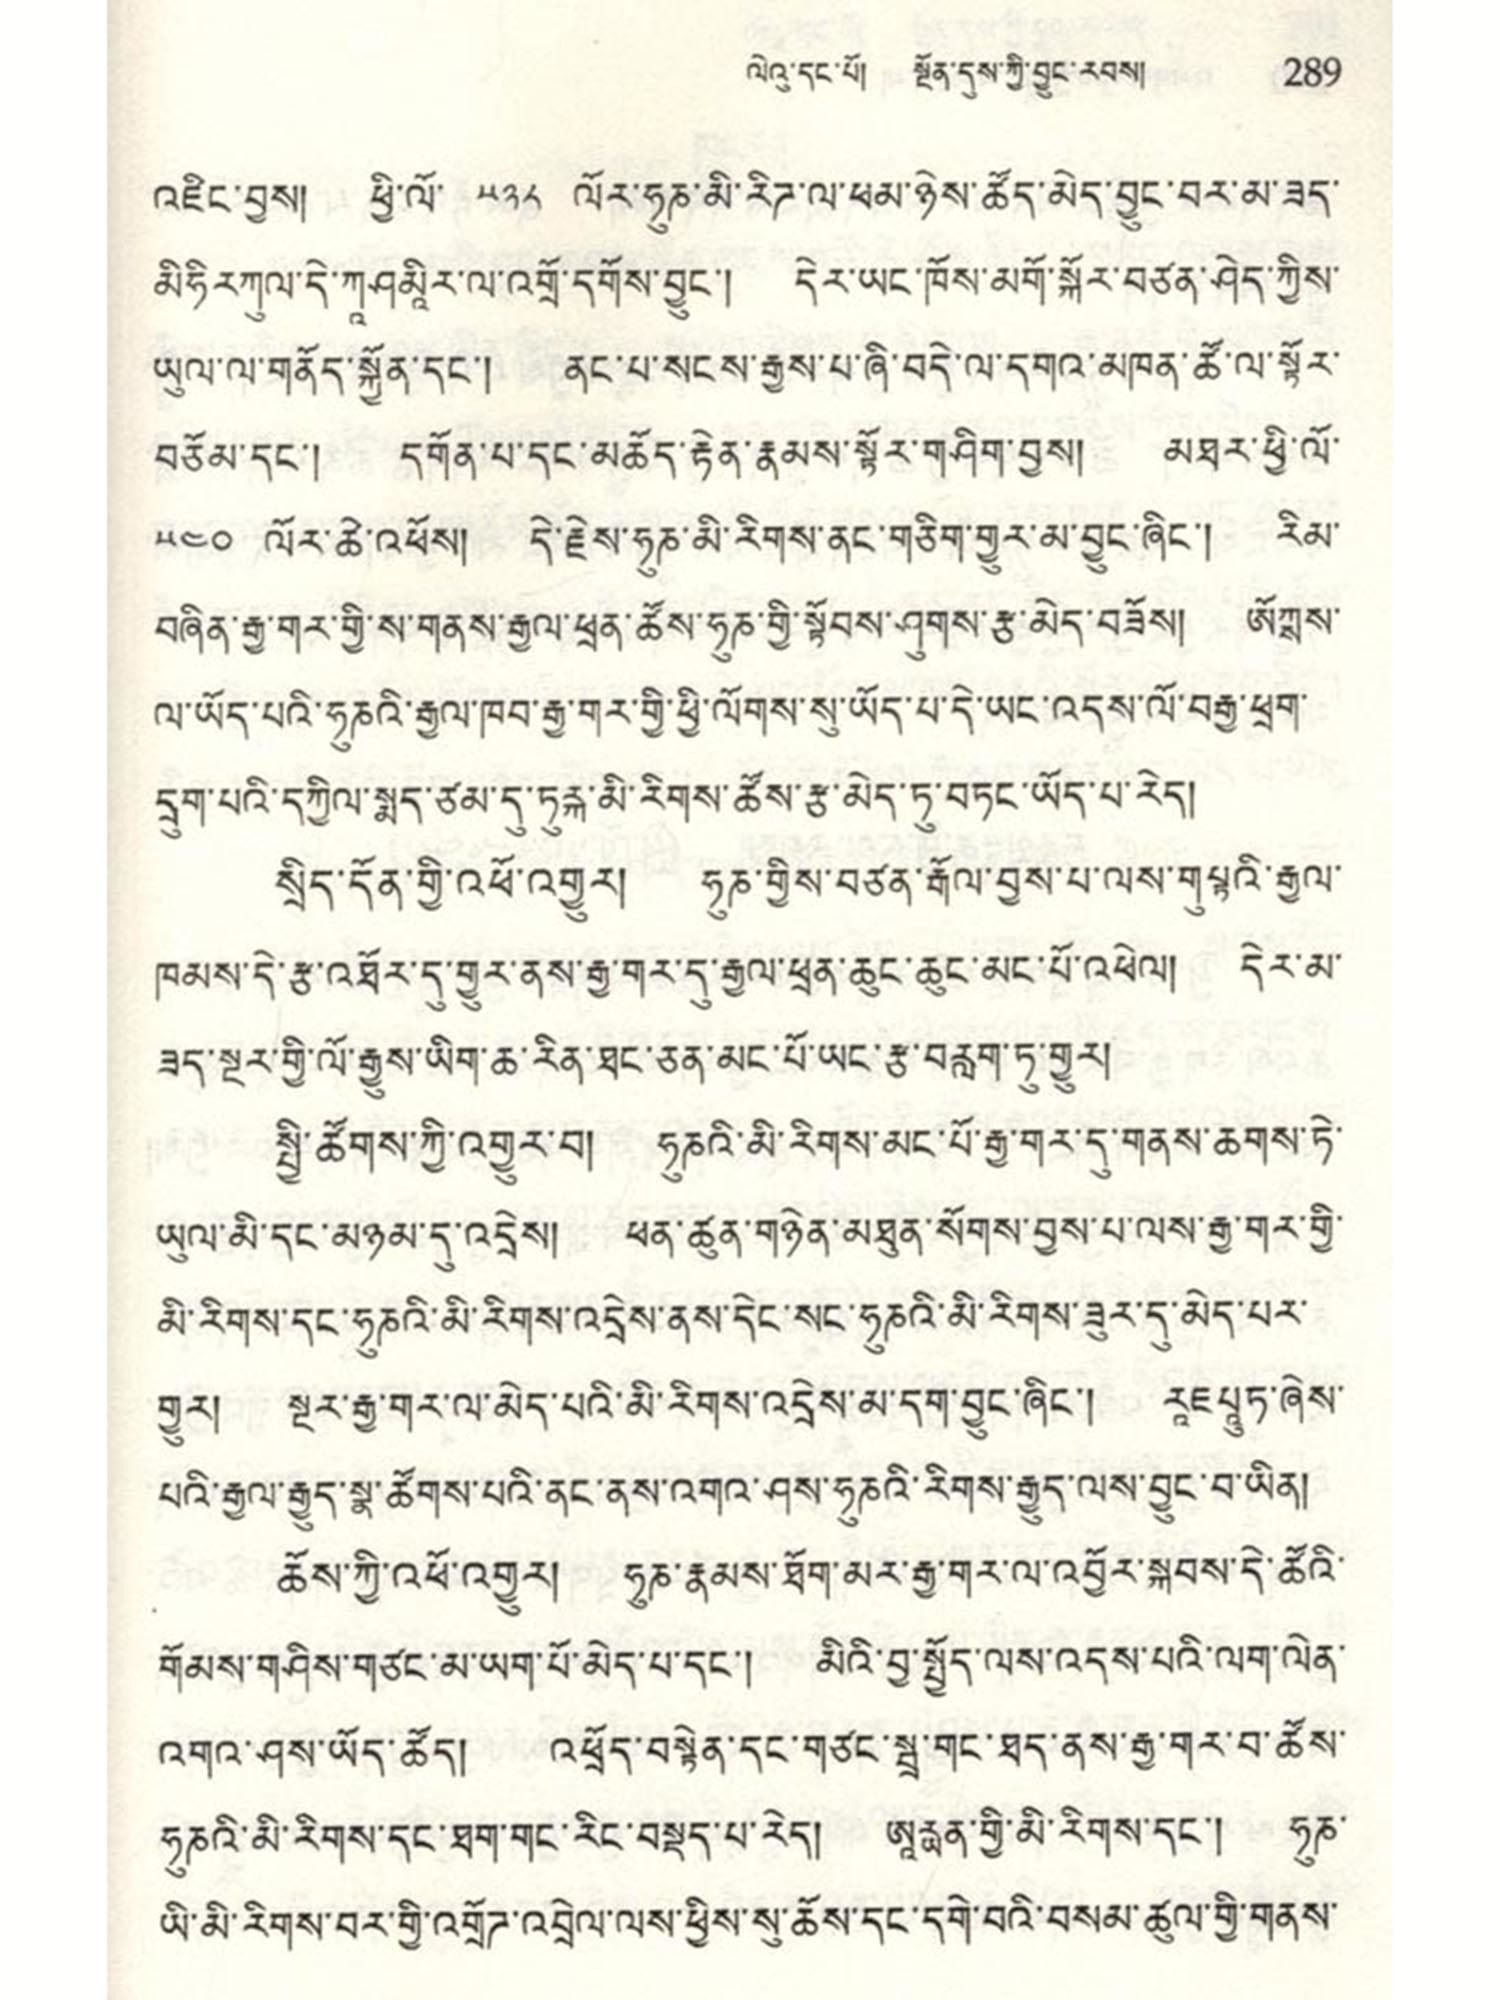 ལེའུ་དང་པོ།  སྔོན་དུས་ཀྱི་བྱུང་རབས།  289
འཛིང་བྱས།  ཕྱི་ལོ་ ༥༢༨ ལོར་ཧུཎ་མི་རིཊ་ལ་ཕམ་ཉེས་ཚོད་མེད་བྱུང་བར་མ་ཟད་
མིཧིརཀུལ་དེ་ཀཱཤམཱིར་ལ་འགྲོ་དགོས་བྱུང་།  དེར་ཡང་ཁོས་མགོ་སྐོར་བཙན་ཤེད་ཀྱིས་
ཡུལ་ལ་གནོད་སྐྱོན་དང་།  ནང་པ་སངས་རྒྱས་པ་ཞི་བདེ་ལ་དགའ་མཁན་ཚོ་ལ་སྟོར་
བཅོམ་དང་།  དགོན་པ་དང་མཆོད་རྟེན་རྣམས་སྟོར་གཤིག་བྱས།  མཐར་ཕྱི་ལོ་
༥༤༠ ལོར་ཚེ་འཕོས།  དེ་རྗེས་ཧུཎ་མི་རིགས་ནང་གཅིག་གྱུར་མ་བྱུང་ཞིང་།  རིམ་
བཞིན་རྒྱ་གར་གྱི་ས་གནས་རྒྱལ་ཕྲན་ཚོས་ཧུཎ་གྱི་སྟོབས་ཤུགས་རྩ་མེད་བཟོས།  ཨོཀྶས་
ལ་ཡོད་པའི་ཧུཎའི་རྒྱལ་ཁབ་རྒྱ་གར་གྱི་ཕྱི་ལོགས་སུ་ཡོད་པ་དེ་ཡང་འདས་ལོ་བརྒྱ་ཕྲག་
དྲུག་པའི་དཀྱིལ་སྨད་ཙམ་དུ་ཏུརྐ་མི་རིགས་ཚོས་རྩ་མེད་ཏུ་བཏང་ཡོད་པ་རེད།
སྲིད་དོན་གྱི་འཕོ་འགྱུར།  ཧུཎ་གྱིས་བཙན་རྒོལ་བྱས་པ་ལས་གུཔྟའི་རྒྱལ་
ཁམས་དེ་རྩ་འཐོར་དུ་གྱུར་ནས་རྒྱ་གར་དུ་རྒྱལ་ཕྲན་ཆུང་ཆུང་མང་པོ་འཕེལ།  དེར་མ་
ཟད་སྔར་གྱི་ལོ་རྒྱུས་ཡིག་ཆ་རིན་ཐང་ཅན་མང་པོ་ཡང་རྩ་བརླག་ཏུ་གྱུར།
སྤྱི་ཚོགས་ཀྱི་འགྱུར་བ།  ཧུཎའི་མི་རིགས་མང་པོ་རྒྱ་གར་དུ་གནས་ཆགས་ཏེ་
ཡུལ་མི་དང་མཉམ་དུ་འདྲེས།  ཕན་ཚུན་གཉེན་མཐུན་སོགས་བྱས་པ་ལས་རྒྱ་གར་གྱི་
མི་རིགས་དང་ཧུཎའི་མི་རིགས་འདྲེས་ནས་དེང་སང་ཧུཎའི་མི་རིགས་ཟུར་དུ་མེད་པར་
གྱུར།  སྔར་རྒྱ་གར་ལ་མེད་པའི་མི་རིགས་འདྲེས་མ་དག་བྱུང་ཞིང་།  རཱཇཔཱུཏ་ཞེས་
པའི་རྒྱལ་རྒྱུད་སྣ་ཚོགས་པའི་ནང་ནས་འགའ་ཤས་ཧུཎའི་རིགས་རྒྱུད་ལས་བྱུང་བ་ཡིན།
ཆོས་ཀྱི་འཕོ་འགྱུར།  ཧུཎ་རྣམས་ཐོག་མར་རྒྱ་གར་ལ་འབྱོར་སྐབས་དེ་ཚོའི་
གོམས་གཤིས་གཙང་མ་ཡག་པོ་མེད་པ་དང་།  མིའི་བྱ་སྤྱོད་ལས་འདས་པའི་ལག་ལེན་
འགའ་ཤས་ཡོད་ཚོད།  འཕྲོད་བསྟེན་དང་གཙང་སྦྲ་གང་ཐད་ནས་རྒྱ་གར་བ་ཚོས་
ཧུཎའི་མི་རིགས་དང་ཐག་གང་རིང་བསྡད་པ་རེད།  ཨཱརྻན་གྱི་མི་རིགས་དང་།  ཧུཎ་
ཡི་མི་རིགས་བར་གྱི་འགྲོཊ་འབྲེལ་ལས་ཕྱིས་སུ་ཆོས་དང་དགེ་བའི་བསམ་ཚུལ་གྱི་གནས་